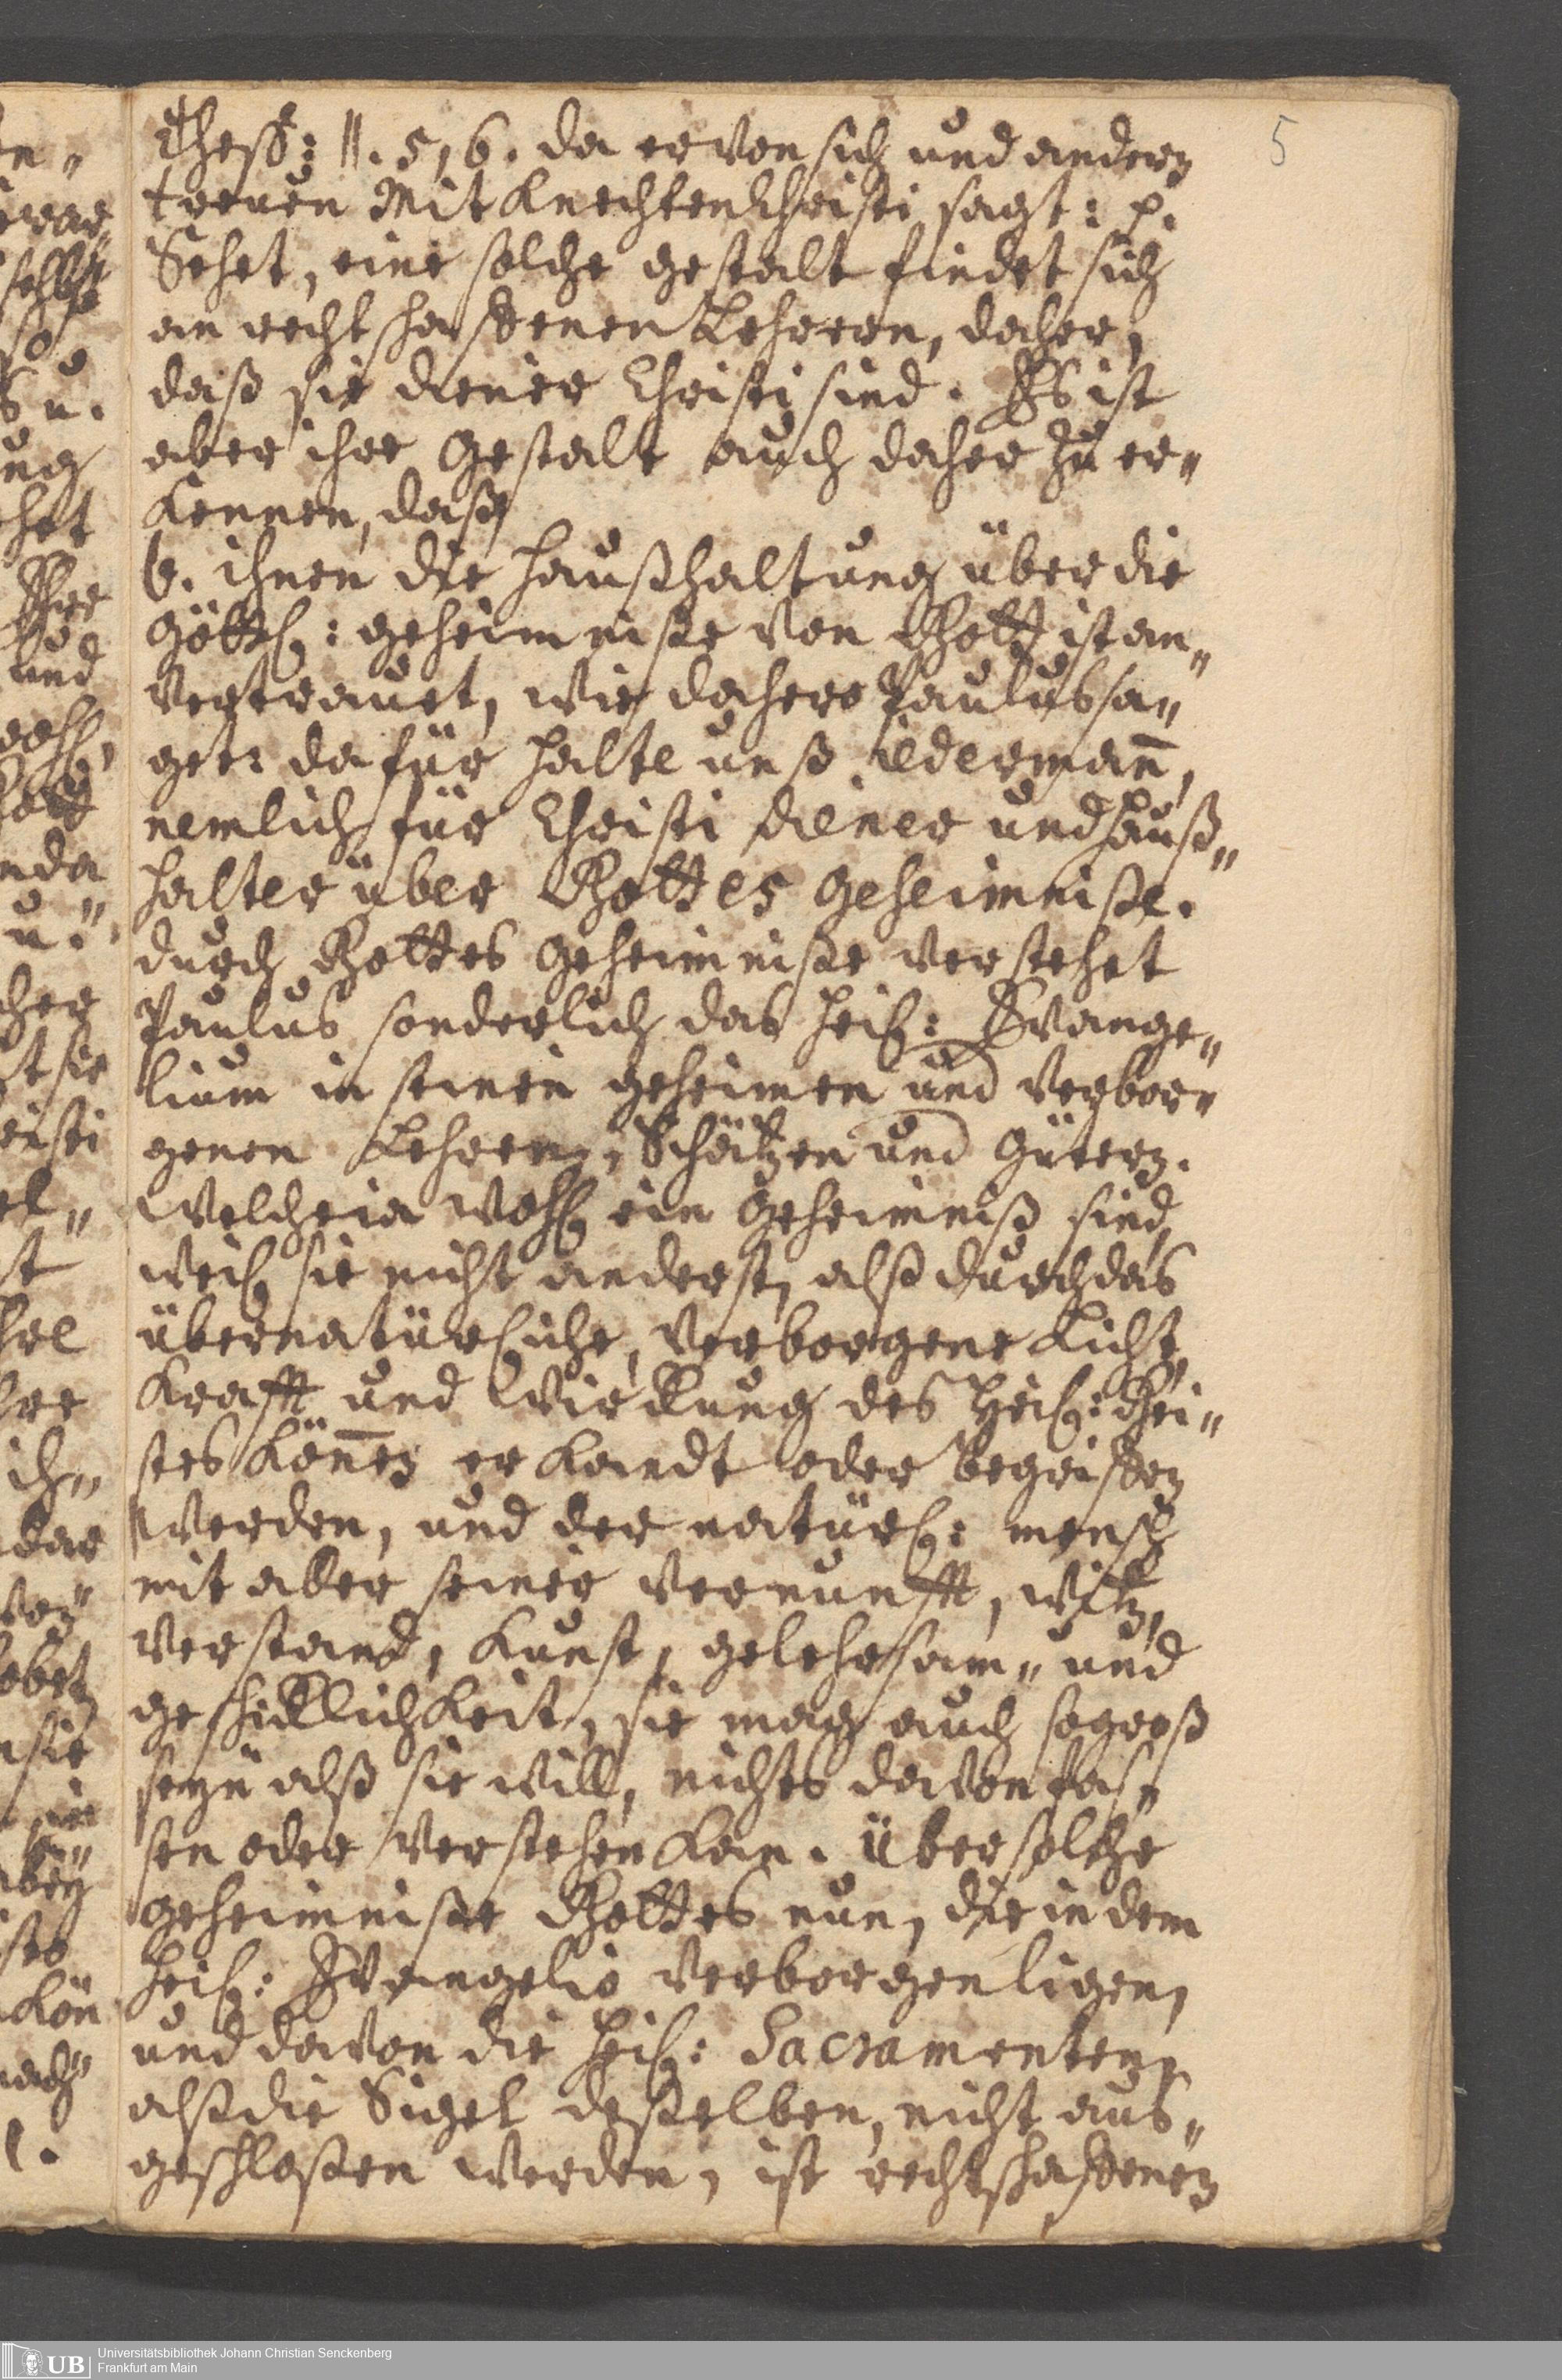 5
Thess: II. 5, 6. da er von sich und andern
treuen Mit Knechten Christi sagt: p.
Sehet, eine solche gestalt findet sich
an rechtschaffenen Lehrern, daher,
daß sie diener Christi sind. Es ist
aber ihre Gestalt auch daher zu er„
kennen, daß
b. ihnen die Haußhaltung über die
Göttl: geheimniße von Gott ist an„
vertrauet, wie dahero Paulus sa„
get: dafür halte unß iedermañ,
nemlich für Christi diener und Hauß„
halter über Gottes geheimniße.
durch Gottes geheimniße verstehet
Paulus sonderlich das Heil: Evange„
lium in seinen geheimen und verbor„
genen Lehren, Schätzen und Gütern.
welche ja wohl ein geheimniß sind,
weil sie nicht anderst, alß durch das
übernatürliche, verborgene Licht,
Krafft und Wirckung des Heil: Gei„
stes köñen erkandt oder begriffen
werden, und der natürl: mensch
mit aller seiner vernunfft, witz,
verstand, kunst, gelehrsam„ und
geschicklichkeit, sie mag auch so groß
seyn alß sie will, nichts davon faß„
sen oder verstehen kan. Über solche
geheimniße Gottes nun, die in dem
Heil: Evangelio verborgen ligen,
und davon die Heil: Sacramenten,
alß die Sigel deßelben, nicht aus„
geschloßen werden, ist rechtschaffenen
UB Universitätsbibliothek Johann Christian Senckenberg
Frankfurt am Main